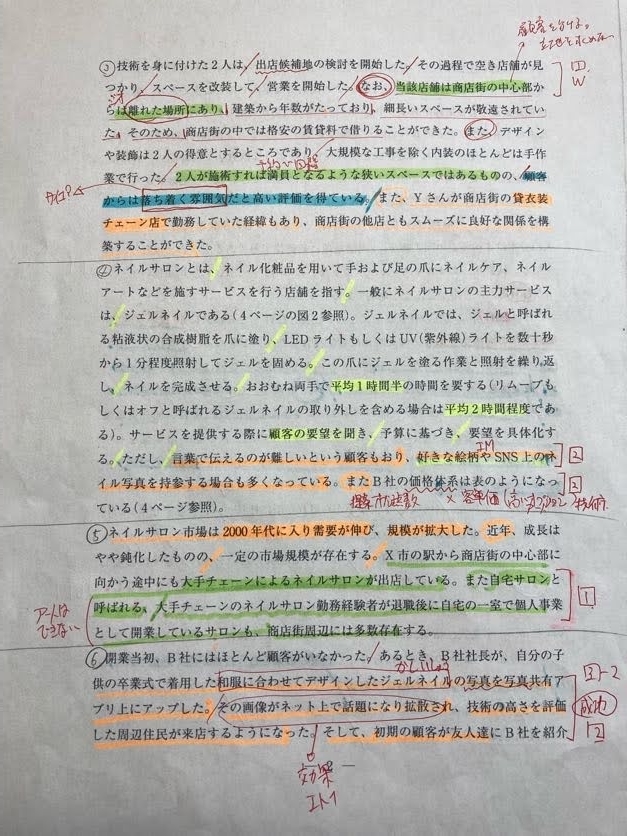 顧客を分ける。
③技術を身に付けた2人は、出店候補地の検討を開始した。その過程で空き店舗が見
つかり、スペースを改装して、営業を開始した。なお、当該店舗は商店街の中心部か
W
らは離れた場所にあり、建築から年数がたっており、細長いスペースが敬遠されてい
た。そのため、商店街の中では格安の賃貸料で借りることができた。また、デザイン
や装飾は2人の得意とするところであり、大規模な工事を除く内装のほとんどは手作
業で行った。2人が施術すれば満員となるような狭いスペースではあるものの、顧客
からは落ち着く雰囲気だと高い評価を得ている。また、Yさんが商店街の貸衣装
チェーン店で勤務していた経緯もあり、商店街の他店ともスムーズに良好な関係を構
築することができた。
④ネイルサロンとは、ネイル化粧品を用いて手および足の爪にネイルケア、ネイル
アートなどを施すサービスを行う店舗を指す。一般にネイルサロンの主力サービス
は、ジェルネイルである(4ページの図2参照)。ジェルネイルでは、ジェルと呼ばれ
る粘液状の合成樹脂を爪に塗り、LEDライトもしくはUV(紫外線)ライトを数十秒
から1分程度照射してジェルを固める。この爪にジェルを塗る作業と照射を繰り返
し、ネイルを完成させる。おおむね両手で平均1時間半の時間を要する(リムーブも
しくはオフと呼ばれるジェルネイルの取り外しを含める場合は平均2時間程度であ
る)。サービスを提供する際に顧客の要望を聞き、予算に基づき、要望を具体化す
る。ただし、言葉で伝えるのが難しいという顧客もおり、好きな絵柄やSNS上のネ
イル写真を持参する場合も多くなっている。またB社の価格体系は表のようになっ
ている(4ページ参照)。
×客単価
⑤ネイルサロン市場は2000年代に入り需要が伸び、規模が拡大した。近年、成長は
やや鈍化したものの、一定の市場規模が存在する。X市の駅から商店街の中心部に
向かう途中にも大手チェーンによるネイルサロンが出店している。また自宅サロンと
呼ばれる、大手チェーンのネイルサロン勤務経験者が退職後に自宅の一室で個人事業
として開業しているサロンも、商店街周辺には多数存在する。
できない
⑥開業当初、B社にはほとんど顧客がいなかった。あるとき、B社社長が、自分の子
供の卒業式で着用した和服に合わせてデザインしたジェルネイルの写真を写真共有ア
プリ上にアップした。その画像がネット上で話題になり拡散され、技術の高さを評価
成功
した周辺住民が来店するようになった。そして、初期の顧客が友人達にB社を紹介
効果